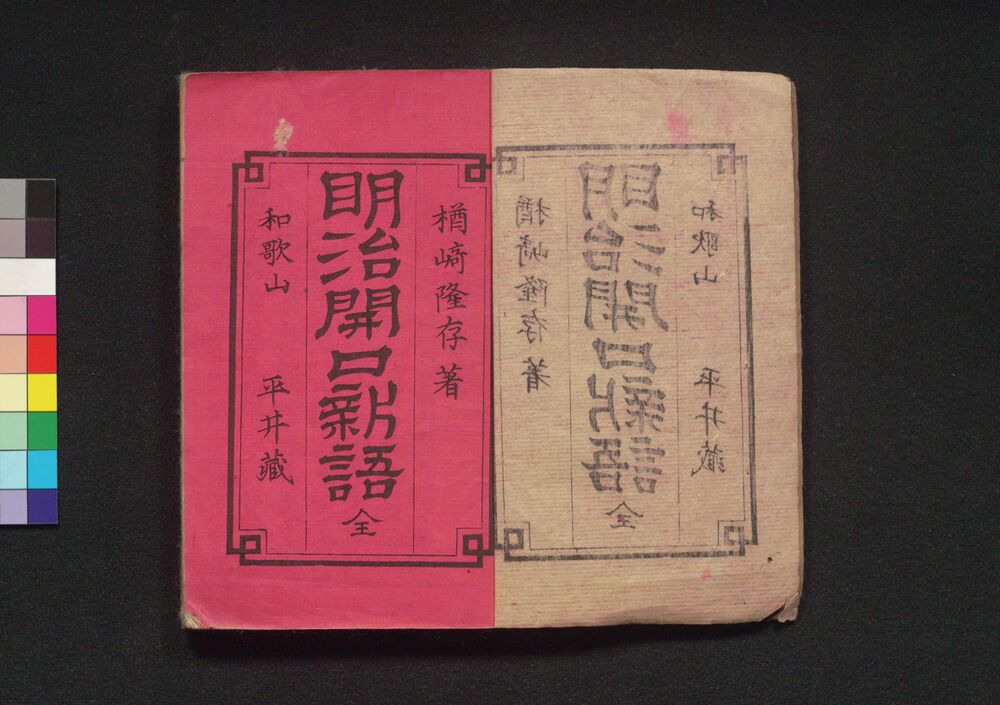 楢﨑隆存著
明治開口新語全
和歌山 平井藏